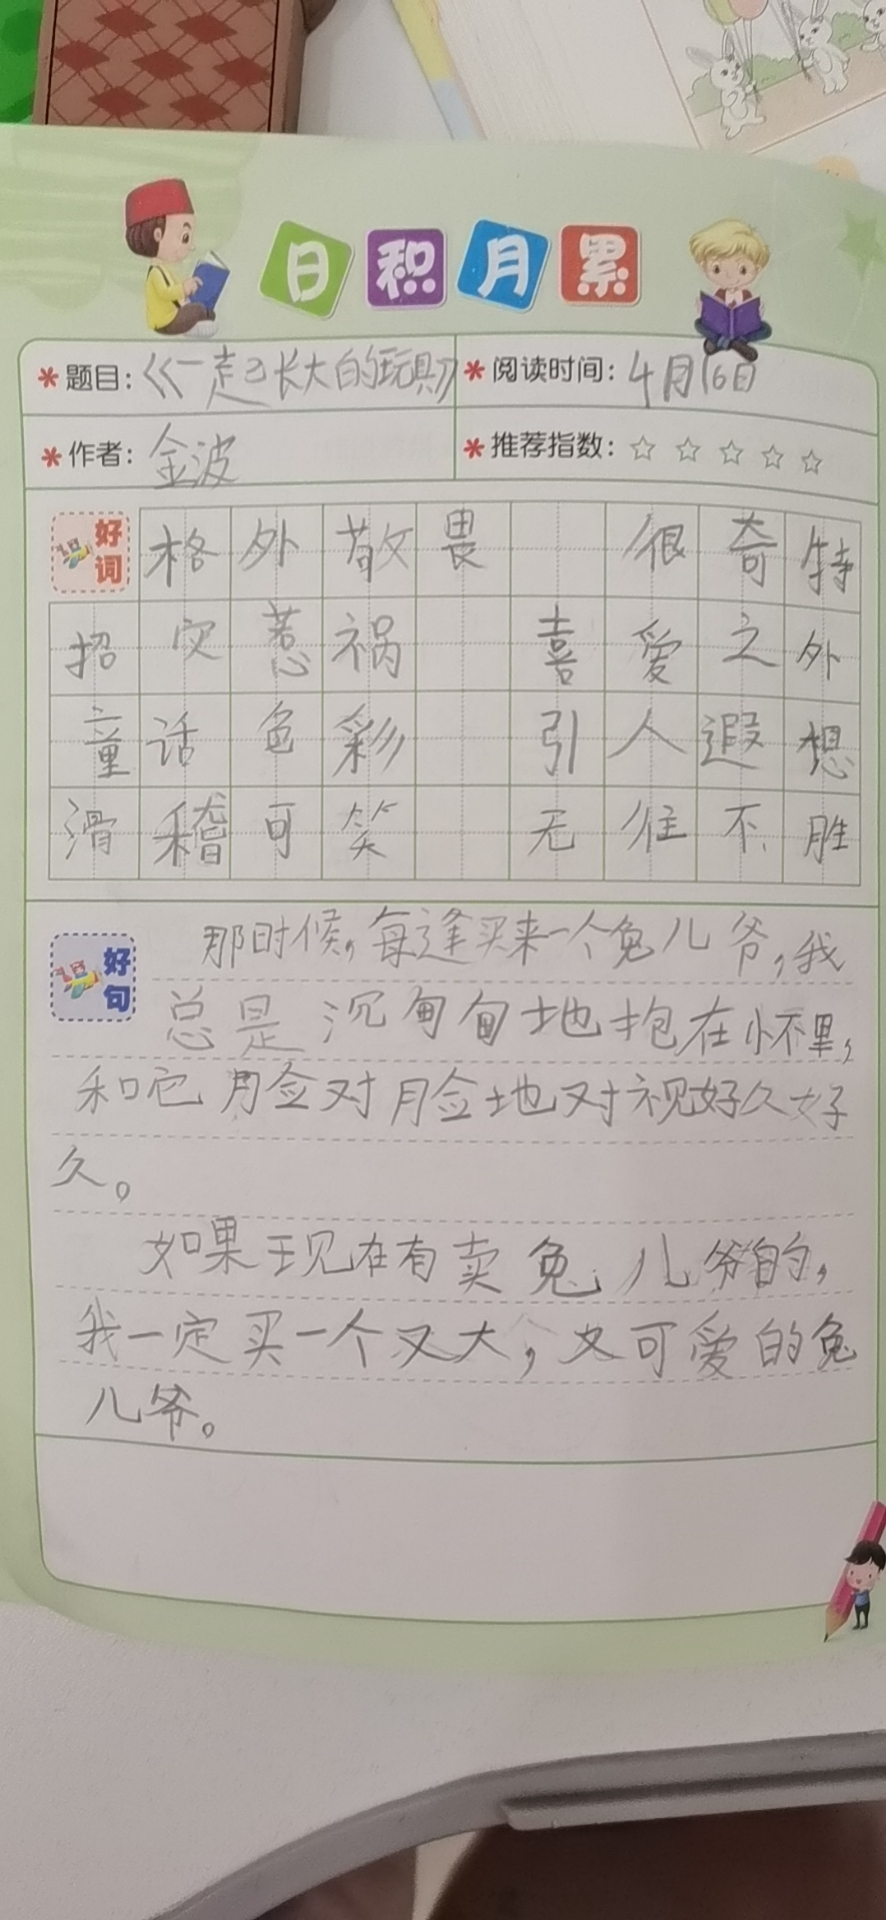 日积月累
题目：《一起长大的玩具》 阅读时间：4月16日
作者：金波 推荐指数：☆☆☆☆☆
好词 格外敬畏 很奇特
招灾惹祸 喜爱之外
童话色彩 引人遐想
滑稽可笑 无往不胜
好句 那时候，每逢买来一个兔儿爷，我
总是沉甸甸地抱在怀里，
和它脸对脸地对视好久好
久。
如果现在有卖兔儿爷的，
我一定买一个又大，又可爱的兔
儿爷。